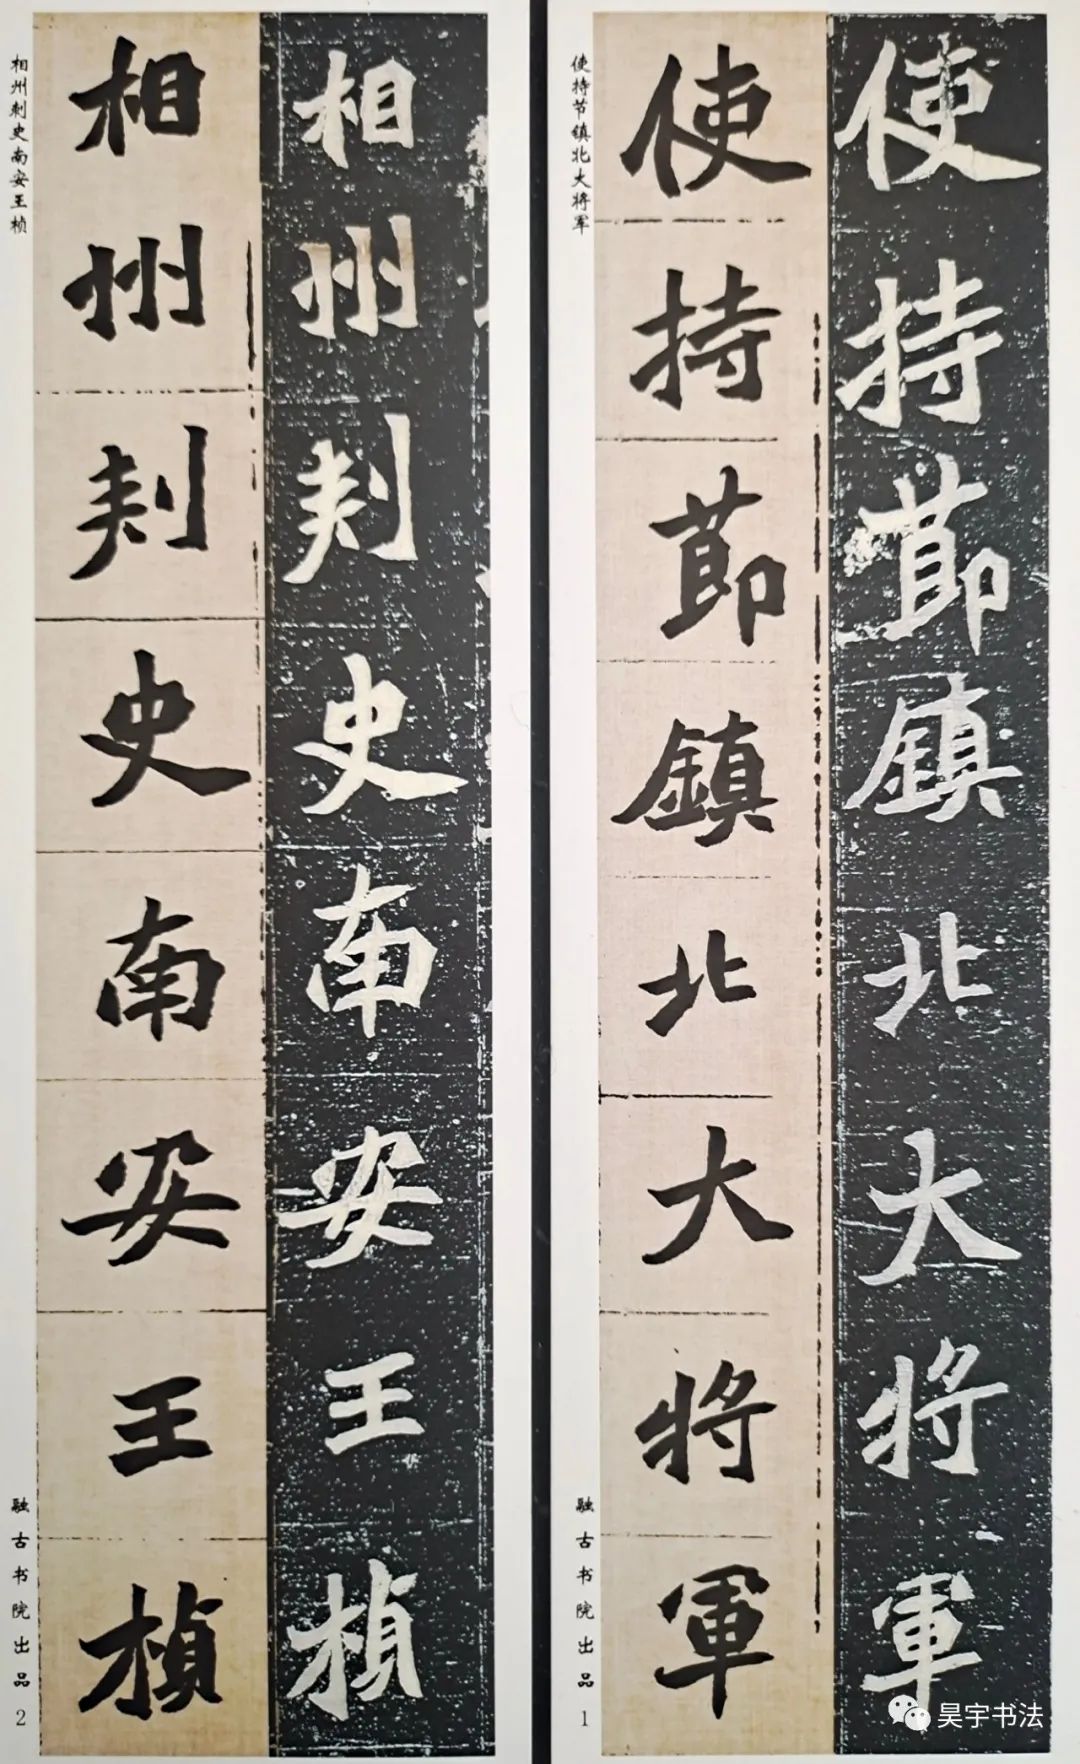 使持節鎮北大将軍
使持節鎮北大将軍
使持节镇北大将军
融古书院出品
1
相州刾史南安王楨
相州刾史南安王楨
相州刺史南安王桢
融古书院出品
2
昊宇书法